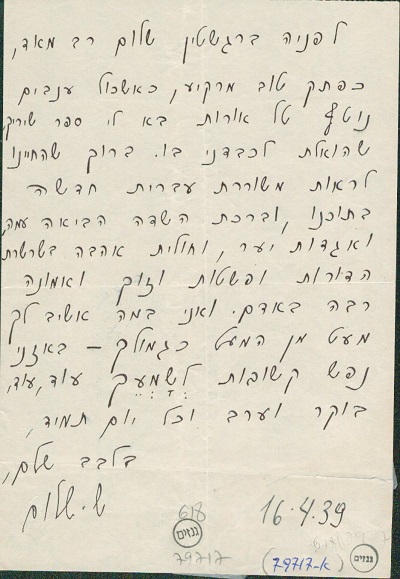 לפניה ברגשטין שלום רב מאד,
כפתק טוב מרקיע, כאשכול ענבים
נוטף טל אורות בא לי ספר שיריך,
שהואלת לכבדני בו. ברוך שהחיינו
לראות משוררת עברית חדשה
בתוכנו, וברכת השדה הביאה עמה,
ואגדות יער, וחולית אהבה בשרשרת
הדורות ופשטות וזוך ואמונה
רבה באדם. ואני במה אשיב לך
מעט מן המעט כגמולך – באזני
נפש קשובות לשמעך עוד, עוד,
בוקר וערב וכל יום תמיד,
בלבב שלם,
ש. שלום
16.4.39
618
גנזים
79717
(79717-א)
גנזים